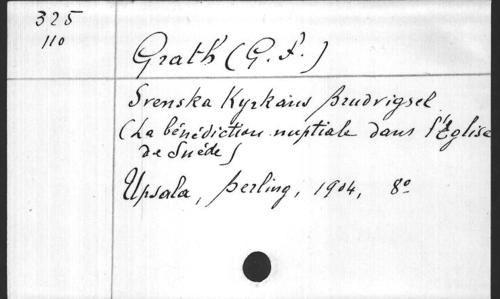 325
110
Grath (G. F.)
Svenska Kyrkans Brudvigsel
(La bénédiction nuptiale dans l'Église
de Suède)
Upsala, Berling, 1904, 8o